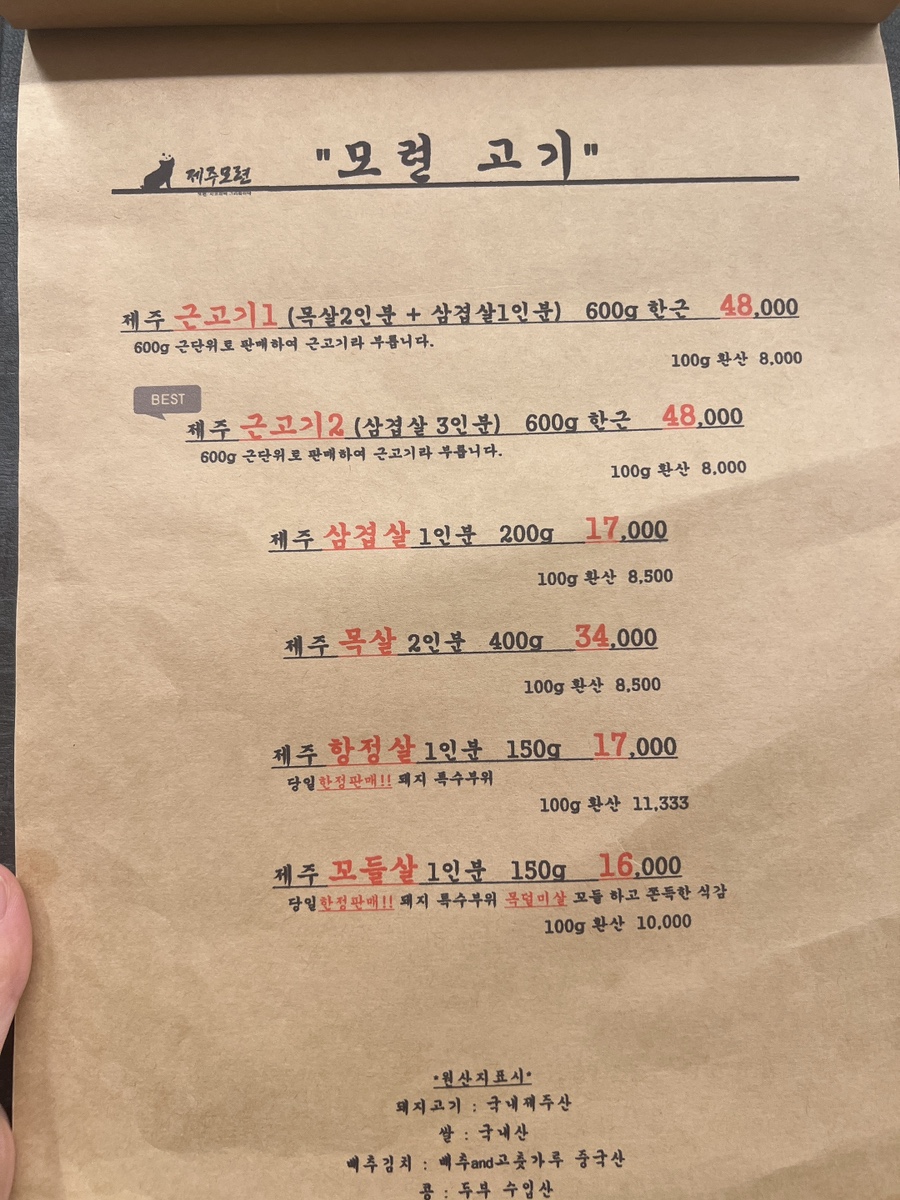 제주모련
"모련 고기"
제주 근고기1 (목살2인분 + 삼겹살1인분) 600g 한근 48,000
600g 근단위로 판매하여 근고기라 부릅니다.
100g 환산 8,000
BEST
제주 근고기2 (삼겹살 3인분) 600g 한근 48,000
600g 근단위로 판매하여 근고기라 부릅니다.
100g 환산 8,000
제주 삼겹살 1인분 200g 17,000
100g 환산 8,500
제주 목살 2인분 400g 34,000
100g 환산 8,500
제주 항정살 1인분 150g 17,000
당일한정판매!! 돼지 특수부위
100g 환산 11,333
제주 꼬들살 1인분 150g 16,000
당일한정판매!! 돼지 특수부위 목덜미살 꼬들 하고 쫀득한 식감
100g 환산 10,000
*원산지표시*
돼지고기 : 국내제주산
쌀 : 국내산
배추김치 : 배추and고춧가루 중국산
콩 : 두부 수입산